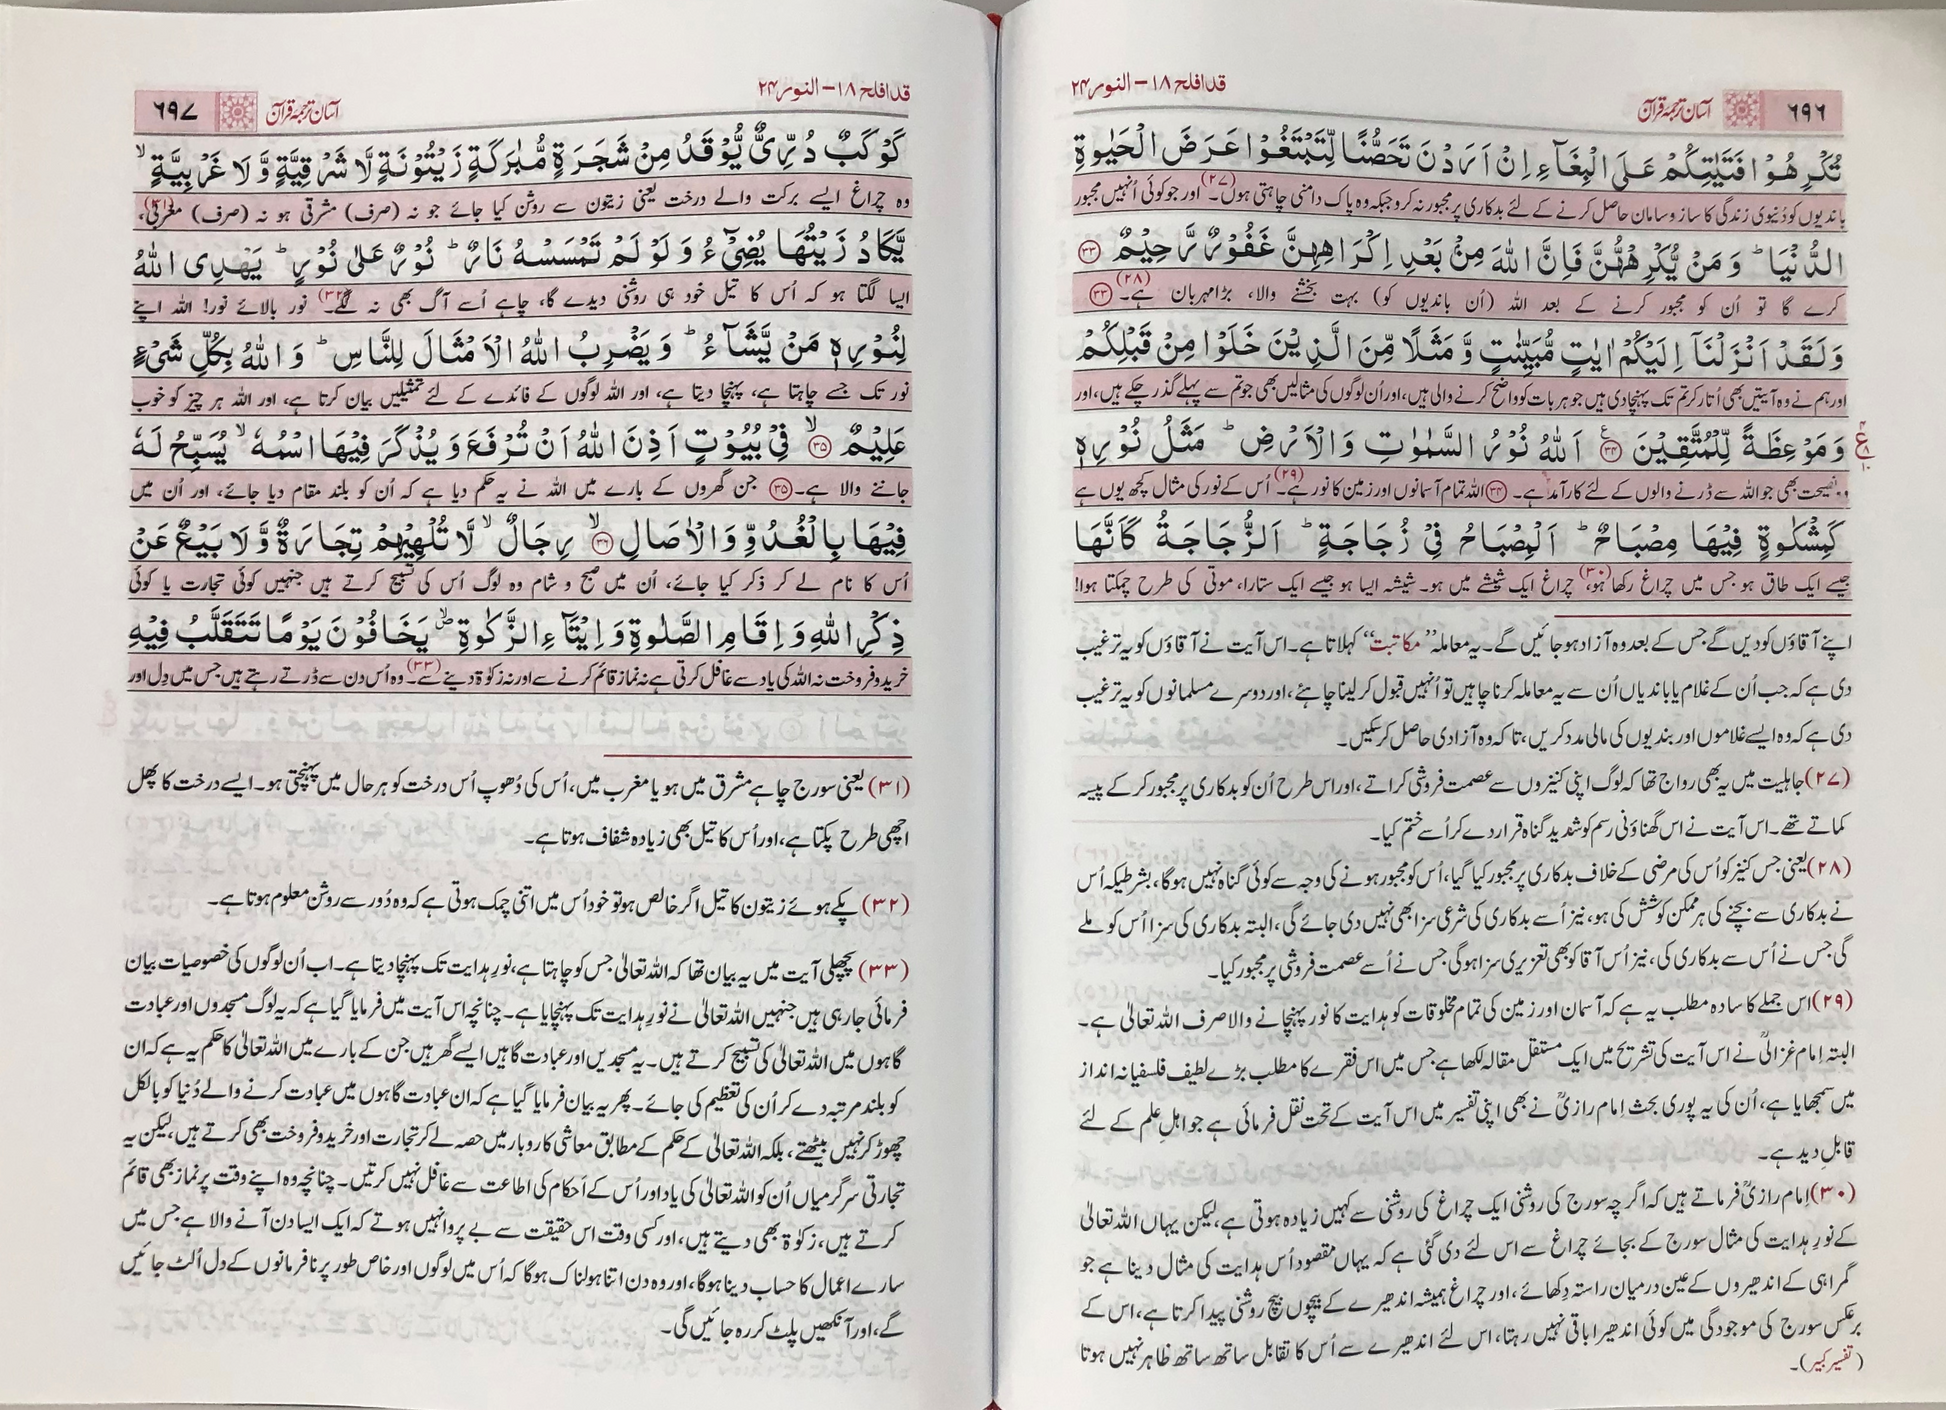 ۶۹۶ آسان ترجمۂ قرآن قدافلح ۱۸ – النور ۲۴
تُكْرِهُوْا فَتَيٰتِكُمْ عَلَى الْبِغَآءِ اِنْ اَرَدْنَ تَحَصُّنًا لِّتَبْتَغُوْا عَرَضَ الْحَيٰوةِ
باندیوں کو دُنیوی زندگی کا ساز و سامان حاصل کرنے کے لئے بدکاری پر مجبور نہ کرو جبکہ وہ پاک دامنی چاہتی ہوں۔(۲۷) اور جو کوئی اُنہیں مجبور
الدُّنْيَا ؕ وَ مَنْ يُّكْرِهْهُّنَّ فَاِنَّ اللّٰهَ مِنْۢ بَعْدِ اِكْرَاهِهِنَّ غَفُوْرٌ رَّحِيْمٌ ﴿۳۳﴾
کرے گا تو اُن کو مجبور کرنے کے بعد اللہ (اُن باندیوں کو) بہت بخشنے والا، بڑا مہربان ہے۔(۲۸) ﴿۳۳﴾
وَ لَقَدْ اَنْزَلْنَاۤ اِلَيْكُمْ اٰيٰتٍ مُّبَيِّنٰتٍ وَّ مَثَلًا مِّنَ الَّذِيْنَ خَلَوْا مِنْ قَبْلِكُمْ
اور ہم نے وہ آیتیں بھی اُتار کر تم تک پہنچا دی ہیں جو ہر بات کو واضح کرنے والی ہیں، اور اُن لوگوں کی مثالیں بھی جو تم سے پہلے گذر چکے ہیں، اور
وَ مَوْعِظَةً لِّلْمُتَّقِيْنَ ﴿۳۴﴾ اَللّٰهُ نُوْرُ السَّمٰوٰتِ وَ الْاَرْضِ ؕ مَثَلُ نُوْرِهٖ
وہ نصیحت بھی جو اللہ سے ڈرنے والوں کے لئے کارآمد ہے۔ ﴿۳۴﴾ اللہ تمام آسمانوں اور زمین کا نور ہے۔(۲۹) اُس کے نور کی مثال کچھ یوں ہے
كَمِشْكٰوةٍ فِيْهَا مِصْبَاحٌ ؕ اَلْمِصْبَاحُ فِيْ زُجَاجَةٍ ؕ اَلزُّجَاجَةُ كَاَنَّهَا
جیسے ایک طاق ہو جس میں چراغ رکھا ہو،(۳۰) چراغ ایک شیشے میں ہو۔ شیشہ ایسا ہو جیسے ایک ستارا، موتی کی طرح چمکتا ہوا!
اپنے آقاؤں کو دیں گے جس کے بعد وہ آزاد ہو جائیں گے۔ یہ معاملہ ”مکاتبت“ کہلاتا ہے۔ اس آیت نے آقاؤں کو یہ ترغیب
دی ہے کہ جب اُن کے غلام یا باندیاں اُن سے یہ معاملہ کرنا چاہیں تو اُنہیں قبول کر لینا چاہئے، اور دوسرے مسلمانوں کو یہ ترغیب
دی ہے کہ وہ ایسے غلاموں اور بندیوں کی مالی مدد کریں، تاکہ وہ آزادی حاصل کر سکیں۔
(۲۷) جاہلیت میں یہ بھی رواج تھا کہ لوگ اپنی کنیزوں سے عصمت فروشی کراتے، اور اس طرح اُن کو بدکاری پر مجبور کر کے پیسہ
کماتے تھے۔ اس آیت نے اس گھناؤنی رسم کو شدید گناہ قرار دے کر اُسے ختم کیا۔
(۲۸) یعنی جس کنیز کو اُس کی مرضی کے خلاف بدکاری پر مجبور کیا گیا، اُس کو مجبور ہونے کی وجہ سے کوئی گناہ نہیں ہوگا، بشرطیکہ اُس
نے بدکاری سے بچنے کی ہر ممکن کوشش کی ہو، نیز اُسے بدکاری کی شرعی سزا بھی نہیں دی جائے گی، البتہ بدکاری کی سزا اُس کو ملے
گی جس نے اُس سے بدکاری کی، نیز اُس آقا کو بھی تعزیری سزا ہوگی جس نے اُسے عصمت فروشی پر مجبور کیا۔
(۲۹) اس جملے کا سادہ مطلب یہ ہے کہ آسمان اور زمین کی تمام مخلوقات کو ہدایت کا نور پہنچانے والا صرف اللہ تعالیٰ ہے۔
البتہ اِمام غزالیؒ نے اس آیت کی تشریح میں ایک مستقل مقالہ لکھا ہے جس میں اس فقرے کا مطلب بڑے لطیف فلسفیانہ انداز
میں سمجھایا ہے، اُن کی یہ پوری بحث اِمام رازیؒ نے بھی اپنی تفسیر میں اس آیت کے تحت نقل فرمائی ہے جو اہلِ علم کے لئے
قابلِ دید ہے۔
(۳۰) اِمام رازیؒ فرماتے ہیں کہ اگرچہ سورج کی روشنی ایک چراغ کی روشنی سے کہیں زیادہ ہوتی ہے، لیکن یہاں اللہ تعالیٰ
کے نورِ ہدایت کی مثال سورج کے بجائے چراغ سے اس لئے دی گئی ہے کہ یہاں مقصود اُس ہدایت کی مثال دینا ہے جو
گمراہی کے اندھیروں کے عین درمیان راستہ دکھائے، اور چراغ ہمیشہ اندھیرے کے بیچوں بیچ روشنی پیدا کرتا ہے، اس کے
برعکس سورج کی موجودگی میں کوئی اندھیرا باقی نہیں رہتا، اس لئے اندھیرے سے اُس کا تقابل ساتھ ساتھ ظاہر نہیں ہوتا
(تفسیر کبیر)۔
قدافلح ۱۸ – النور ۲۴ آسان ترجمۂ قرآن ۶۹۷
كَوْكَبٌ دُرِّيٌّ يُّوْقَدُ مِنْ شَجَرَةٍ مُّبٰرَكَةٍ زَيْتُوْنَةٍ لَّا شَرْقِيَّةٍ وَّ لَا غَرْبِيَّةٍ ۙ
وہ چراغ ایسے برکت والے درخت یعنی زیتون سے روشن کیا جائے جو نہ (صرف) مشرقی ہو نہ (صرف) مغربی،(۳۱)
يَّكَادُ زَيْتُهَا يُضِيْٓءُ وَ لَوْ لَمْ تَمْسَسْهُ نَارٌ ؕ نُوْرٌ عَلٰى نُوْرٍ ؕ يَهْدِى اللّٰهُ
ایسا لگتا ہو کہ اُس کا تیل خود ہی روشنی دیدے گا، چاہے اُسے آگ بھی نہ لگے۔(۳۲) نور بالائے نور! اللہ اپنے
لِنُوْرِهٖ مَنْ يَّشَآءُ ؕ وَ يَضْرِبُ اللّٰهُ الْاَمْثَالَ لِلنَّاسِ ؕ وَ اللّٰهُ بِكُلِّ شَيْءٍ
نور تک جسے چاہتا ہے، پہنچا دیتا ہے، اور اللہ لوگوں کے فائدے کے لئے تمثیلیں بیان کرتا ہے، اور اللہ ہر چیز کو خوب
عَلِيْمٌ ۙ﴿۳۵﴾ فِيْ بُيُوْتٍ اَذِنَ اللّٰهُ اَنْ تُرْفَعَ وَ يُذْكَرَ فِيْهَا اسْمُهٗ ۙ يُسَبِّحُ لَهٗ
جاننے والا ہے۔ ﴿۳۵﴾ جن گھروں کے بارے میں اللہ نے یہ حکم دیا ہے کہ اُن کو بلند مقام دیا جائے، اور اُن میں
فِيْهَا بِالْغُدُوِّ وَ الْاٰصَالِ ۙ﴿۳۶﴾ رِجَالٌ ۙ لَّا تُلْهِيْهِمْ تِجَارَةٌ وَّ لَا بَيْعٌ عَنْ
اُس کا نام لے کر ذکر کیا جائے، اُن میں صبح و شام وہ لوگ اُس کی تسبیح کرتے ہیں جنہیں کوئی تجارت یا کوئی
ذِكْرِ اللّٰهِ وَ اِقَامِ الصَّلٰوةِ وَ اِيْتَآءِ الزَّكٰوةِ ۪ۙ يَخَافُوْنَ يَوْمًا تَتَقَلَّبُ فِيْهِ
خرید و فروخت نہ اللہ کی یاد سے غافل کرتی ہے نہ نماز قائم کرنے سے اور نہ زکوٰۃ دینے سے۔(۳۳) وہ اُس دن سے ڈرتے رہتے ہیں جس میں دِل اور
(۳۱) یعنی سورج چاہے مشرق میں ہو یا مغرب میں، اُس کی دُھوپ اُس درخت کو ہر حال میں پہنچتی ہو۔ ایسے درخت کا پھل
اچھی طرح پکتا ہے، اور اُس کا تیل بھی زیادہ شفاف ہوتا ہے۔
(۳۲) پکے ہوئے زیتون کا تیل اگر خالص ہو تو خود اُس میں اتنی چمک ہوتی ہے کہ وہ دُور سے روشن معلوم ہوتا ہے۔
(۳۳) پچھلی آیت میں یہ بیان تھا کہ اللہ تعالیٰ جس کو چاہتا ہے، نورِ ہدایت تک پہنچا دیتا ہے۔ اب اُن لوگوں کی خصوصیات بیان
فرمائی جا رہی ہیں جنہیں اللہ تعالیٰ نے نورِ ہدایت تک پہنچایا ہے۔ چنانچہ اس آیت میں فرمایا گیا ہے کہ یہ لوگ مسجدوں اور عبادت
گاہوں میں اللہ تعالیٰ کی تسبیح کرتے ہیں۔ یہ مسجدیں اور عبادت گاہیں ایسے گھر ہیں جن کے بارے میں اللہ تعالیٰ کا حکم یہ ہے کہ ان
کو بلند مرتبہ دے کر اُن کی تعظیم کی جائے۔ پھر یہ بیان فرمایا گیا ہے کہ ان عبادت گاہوں میں عبادت کرنے والے دُنیا کو بالکل
چھوڑ کر نہیں بیٹھتے، بلکہ اللہ تعالیٰ کے حکم کے مطابق معاشی کاروبار میں حصہ لے کر تجارت اور خرید و فروخت بھی کرتے ہیں، لیکن یہ
تجارتی سرگرمیاں اُن کو اللہ تعالیٰ کی یاد اور اُس کے اَحکام کی اطاعت سے غافل نہیں کرتیں۔ چنانچہ وہ اپنے وقت پر نماز بھی قائم
کرتے ہیں، زکوٰۃ بھی دیتے ہیں، اور کسی وقت اس حقیقت سے بے پروا نہیں ہوتے کہ ایک ایسا دن آنے والا ہے جس میں
سارے اعمال کا حساب دینا ہوگا، اور وہ دن اتنا ہولناک ہوگا کہ اُس میں لوگوں اور خاص طور پر نافرمانوں کے دل اُلٹ جائیں
گے، اور آنکھیں پلٹ کر رہ جائیں گی۔